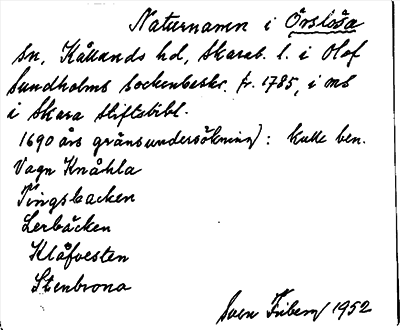 Naturnamn i Örslösa
sn, Kållands hd, Skarab. l. i Olof
Sundholms sockenbeskr. fr. 1785, i ms
i Skara stiftsbibl.
1690 års gränsundersökning): kulle ben.
Vagn Knåhla
Tingsbacken
Lerbäcken
Klåfvesten
Stenbrona
Sven Friberg 1952